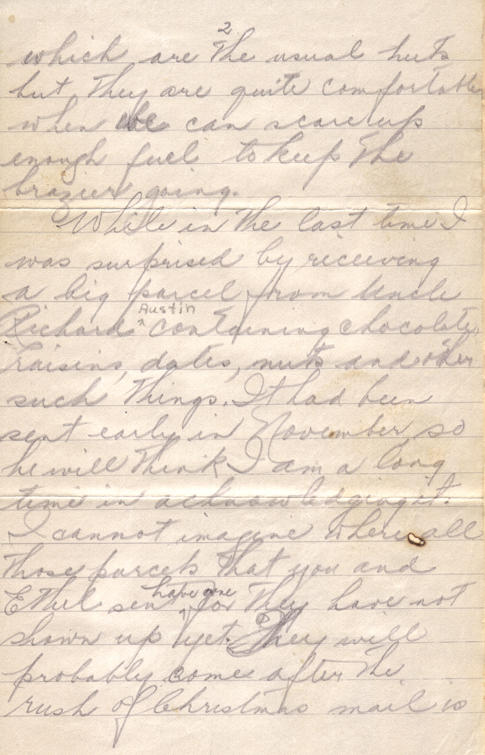 2
which are the usual huts
but they are quite comfortable
when we can scare up
enough fuel to keep the
brazier going.
While in the last time I
was surprised by receiving
a big parcel from Uncle
Austin
Richards ^ containing chocolate,
raisins, dates, nuts and other
such things. It had been
sent early in November, so
he will think I am a long
time in acknowledging it.
I cannot imagine where all
those parcels that you and
have gone
Ethel sent ^ for they have not
shown up yet. They will
probably come after the
rush of Christmas mail is